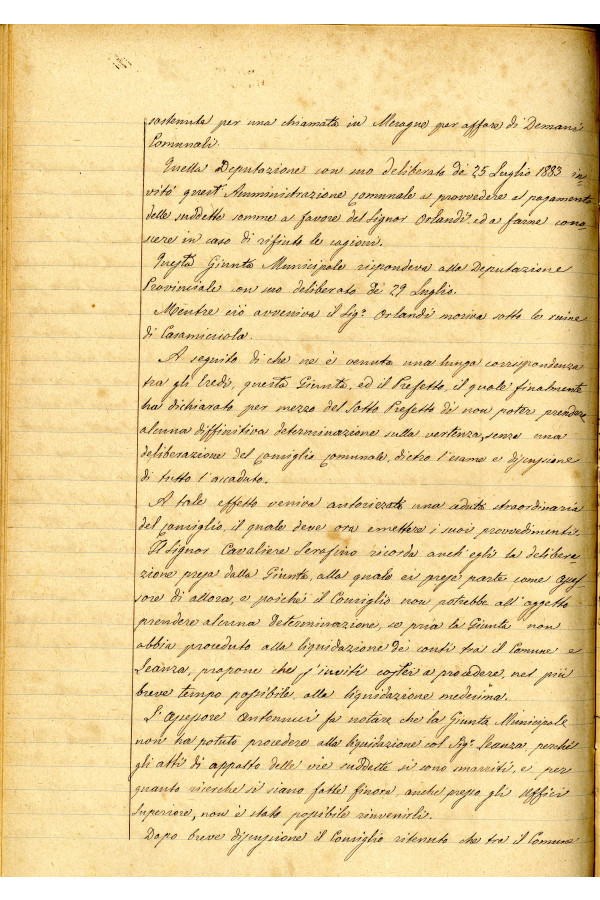 sostenuta per una chiamata in Meragne per affare di Demani
Comunali.
Quella Deputazione con suo deliberato de 25 Luglio 1883 in-
vitò quest'Amministrazione Comunale a provvedere al pagamento
delle suddette somme a favore del Signor Orlandi ed a farne cono-
scere in caso di rifiuto le cagioni.
Questa Giunta Municipale rispondeva alla Deputazione
Provinciale con suo deliberato de 29 Luglio.
Mentre ciò avveniva il Sigr Orlandi moriva sotto le ruine
di Casamicciola.
A seguito di che ne è venuta una lunga corrispondenza
tra gli Eredi, questa Giunta, ed il Prefetto, il quale finalmente
ha dichiarato per mezzo del Sotto Prefetto di non poter prendere
alcuna diffinitiva determinazione sulla vertenza, senza una
deliberazione del Consiglio Comunale, dietro l'esame e discussione
di tutto l'accaduto.
A tale effetto veniva autorizzata una aduta straordinaria
del Consiglio, il quale deve ora emettere i suoi provvedimenti.
Il Signor Cavaliere Serafino ricorda anch'egli la delibera-
zione presa dalla Giunta, alla quale ei prese parte come Asses-
sore di allora, e poiché il Consiglio non potrebbe all'oggetto
prendere alcuna determinazione, se pria la Giunta non
abbia proceduto alla liquidazione de conti tra il Comune e
Leanza, propone che s'inviti costei a procedere, nel più
breve tempo possibile, alla liquidazione medesima.
L'Assessore Antenucci fa notare che la Giunta Municipale
non ha potuto procedere alla liquidazione col Sigr Leanza, perché
gli atti di appalto delle vie suddette si sono smarriti, e per
quanto ricerche si siano fatte finora, anche presso gli Uffici
Superiore, non è stato possibile rinvenirli.
Dopo breve discussione il Consiglio ritenuto che tra il Comune